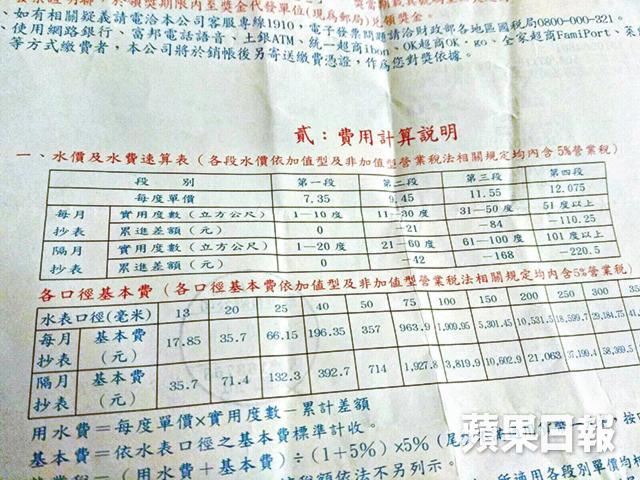 發票證明聯，於領獎期限內至獎金代發單位(現為郵局)兌領獎金。
、如有相關疑義請電洽本公司客服專線1910，電子發票問題請洽財政部各地區國稅局0800-000-321。
、使用網路銀行、富邦電話語音、土銀ATM、統一超商ibon、OK超商OK‧go、全家超商FamiPort、萊
等方式繳費者，本公司將於銷帳後另寄送繳費憑證，作為您對獎依據。
貳：費用計算說明
一、水價及水費速算表(各段水價依加值型及非加值型營業稅法相關規定均內含5%營業稅)
段 別 第一段 第二段 第三段 第四段
每度單價 7.35 9.45 11.55 12.075
每月抄表 實用度數(立方公尺) 1—10度 11—30度 31—50度 51度以上
累進差額(元) 0 -21 -84 -110.25
隔月抄表 實用度數(立方公尺) 1—20度 21—60度 61—100度 101度以上
累進差額(元) 0 -42 -168 -220.5
各口徑基本費(各口徑基本費依加值型及非加值型營業稅法相關規定均內含5%營業稅)
水表口徑(毫米) 13 20 25 40 50 75 100 150 200 250 300 35
每月抄表 基本費(元) 17.85 35.7 66.15 196.35 357 963.9 1,909.95 5,301.45 10,531.5 18,599.7 29,184.75 41,
隔月抄表 基本費(元) 35.7 71.4 132.3 392.7 714 1,927.8 3,819.9 10,602.9 21,063 37,199.4 58,369.5
用水費＝每度單價×實用度數－累計差額
基本費＝依水表口徑之基本費標準計收。
＝(用水費＋基本費)÷(1＋5%)×5%(尾
額依法不另列示。
所適用各段別單價均
蘋果日報